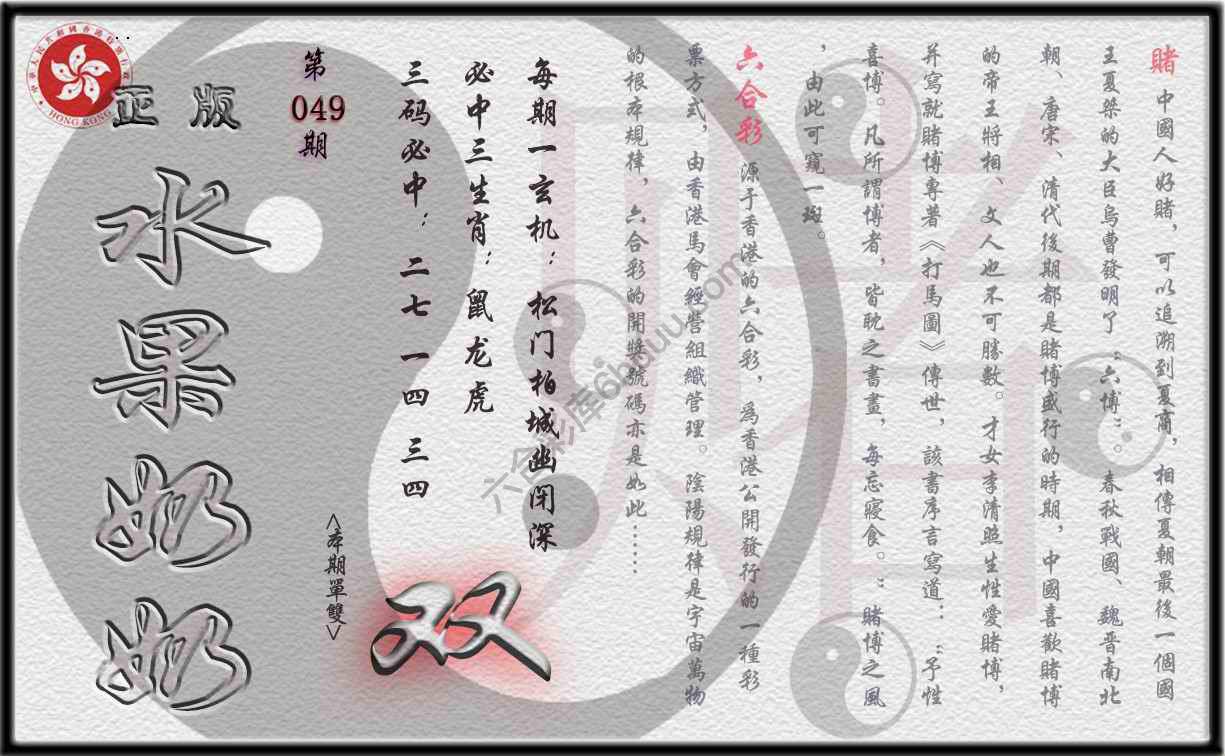 賭中國人好賭，可以追溯到夏商，相傳夏朝最後一個國
王夏桀的大臣烏曹發明了“六博”。春秋戰國、魏晋南北
朝、唐宋、清代後期都是賭博盛行的時期，中國喜歡賭博
的帝王將相、文人也不可勝數。才女李清照生性愛賭博，
并寫就賭博專著《打馬圖》傳世，該書序言寫道：：“予性
喜博。凡所謂博者，皆耽之書畫，每忘寢食。”賭博之風
，由此可窺一斑。
六合彩源于香港的六合彩，爲香港公開發行的一種彩
票方式，由香港馬會經營組織管理。陰陽規律是宇宙萬物
的根本規律，六合彩的開獎號碼亦是如此……
每期一玄机：松门柏城幽闭深
必中三生肖：鼠龙虎
三码必中：二七 一四 三四
<本期單雙>
双
第
049
期
正版
水果奶奶
中華人民共和國香港特別行政區
HONG KONG
六合彩库6hduu.com
赌